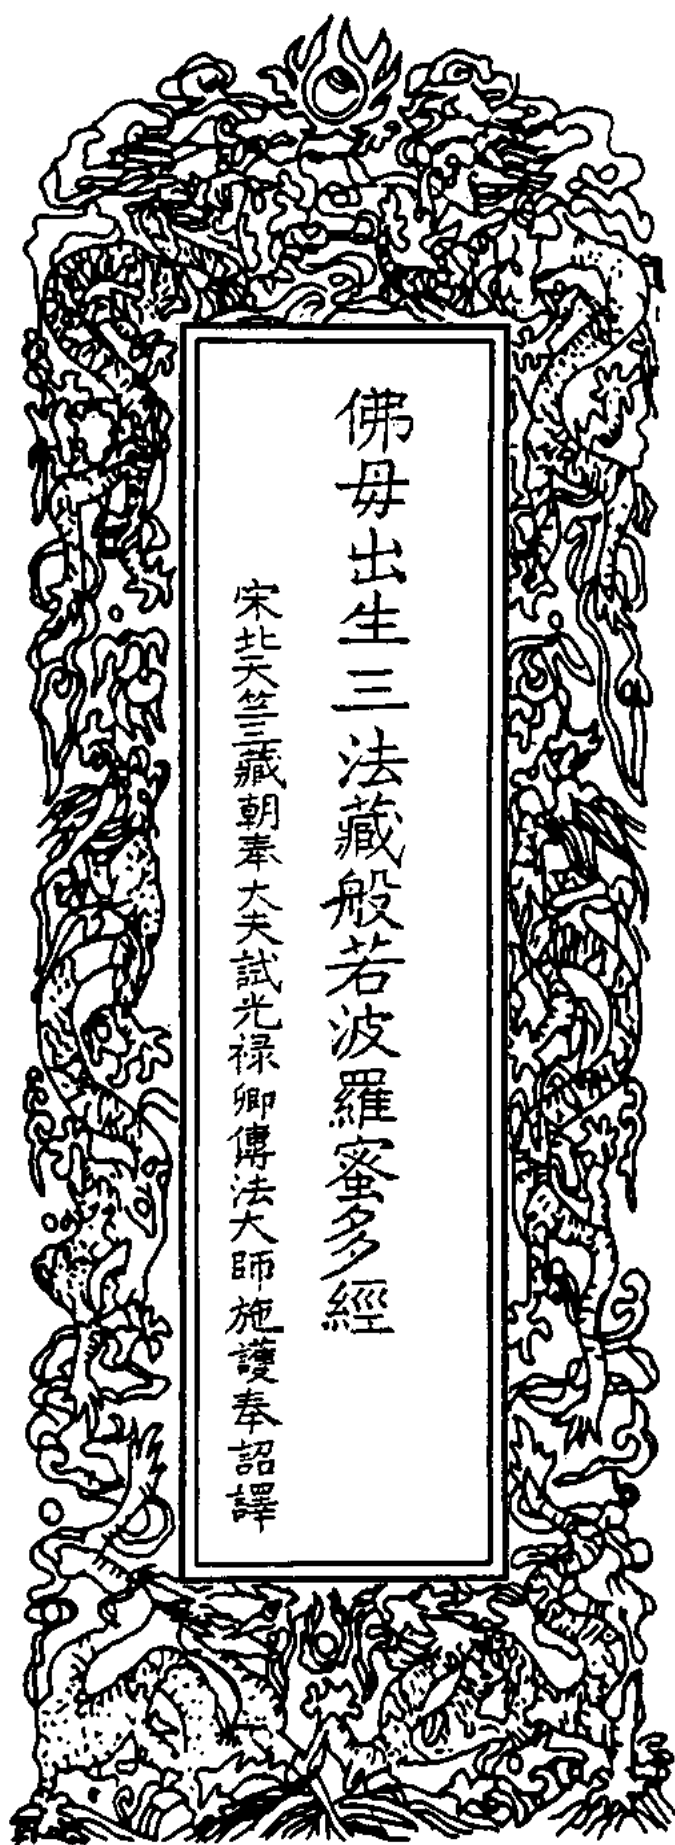 佛母出生三法藏般若波羅蜜多經
宋北天竺三藏朝奉大夫試光祿卿傳法大師施護奉詔譯